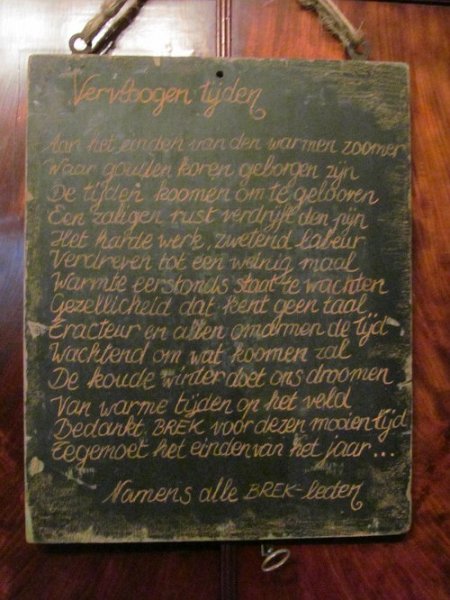 Vervloogen tijden
Aan het einden van den warmen zoomer
Waar goulden koren geborgen zijn
De tijden koomen om te gelooven
Een zaligen rust verdrijft den pijn
Het harde werk, zwetend labeur
Verdreven tot een weinig maal
Warmte eerstonds staat te wachten
Gezellicheid dat kent geen taal
Tracteur en allen omarmen de tijd
Wachtend om wat koomen zal
De koude winter doet ons droomen
Van warme tijden op het veld
Bedankt, BREK voor dezen mooien tijd
Tegemoet het einden van het jaar...
Namens alle BREK-leden